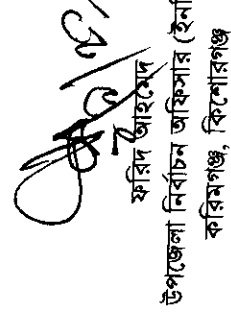 ফরিদ আহমেদ
উপজেলা নির্বাচন অফিসার (ইন
করিমগঞ্জ, কিশোরগঞ্জ